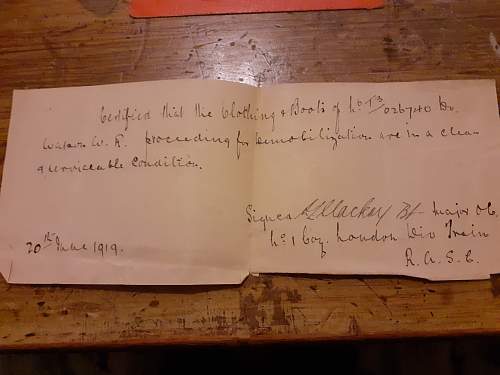 Certified that the Clothing & Boots of No T3/026740 Dr.
Watson W. F. proceeding for Demobilization are in a clean
& serviceable Condition.
Signed Mackey Bt Major O.C.
20th June 1919.
No 1 Coy. London Div Train
R.A.S.C.